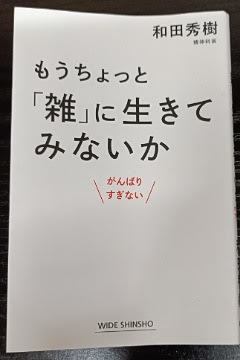 和田秀樹
精神科医
もうちょっと
「雑」に生きて
みないか
がんばり
すぎない
WIDE SHINSHO